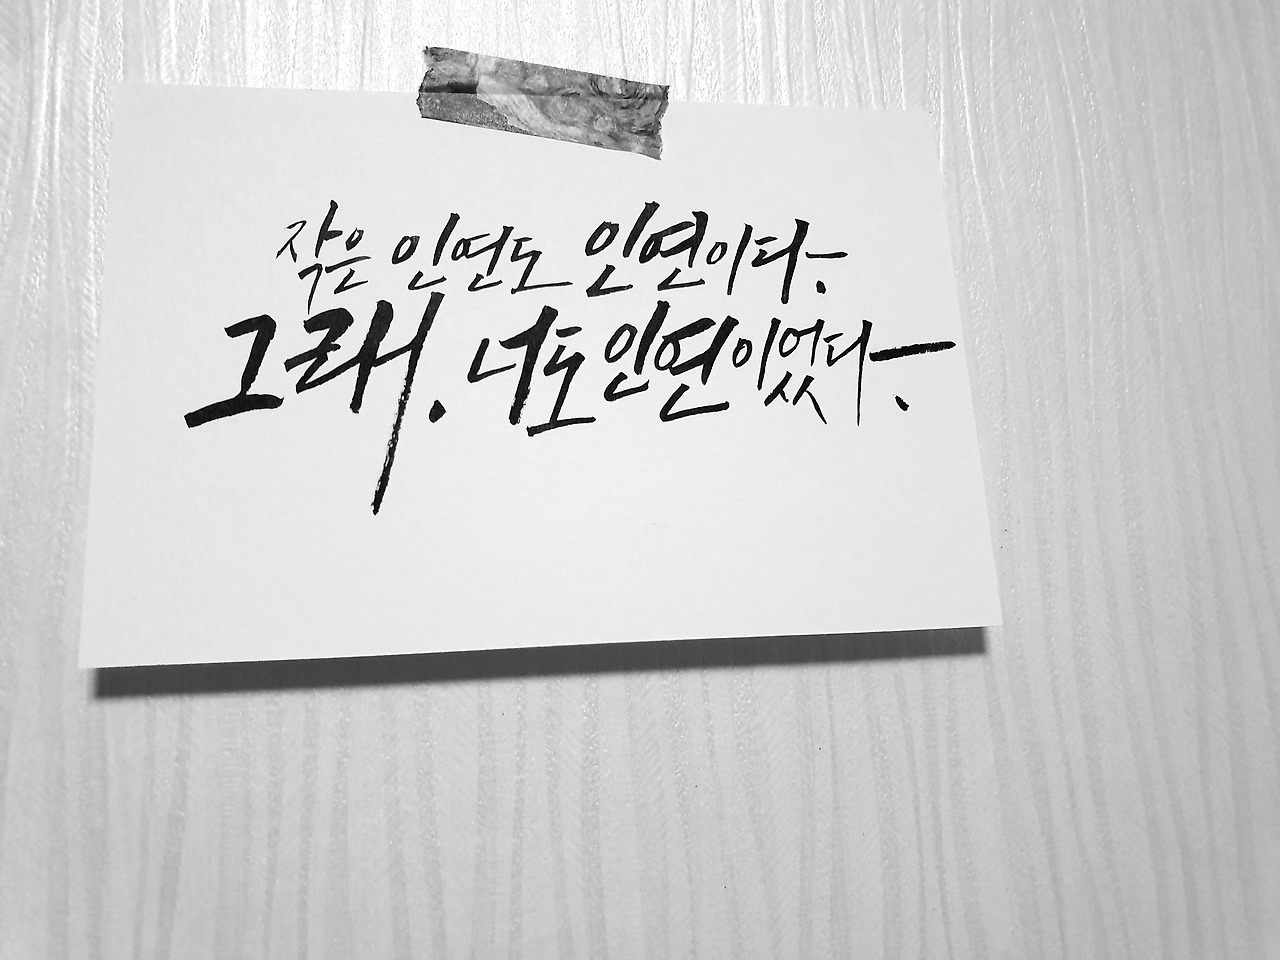 작은 인연도 인연이다.
그래. 너도 인연이었다.